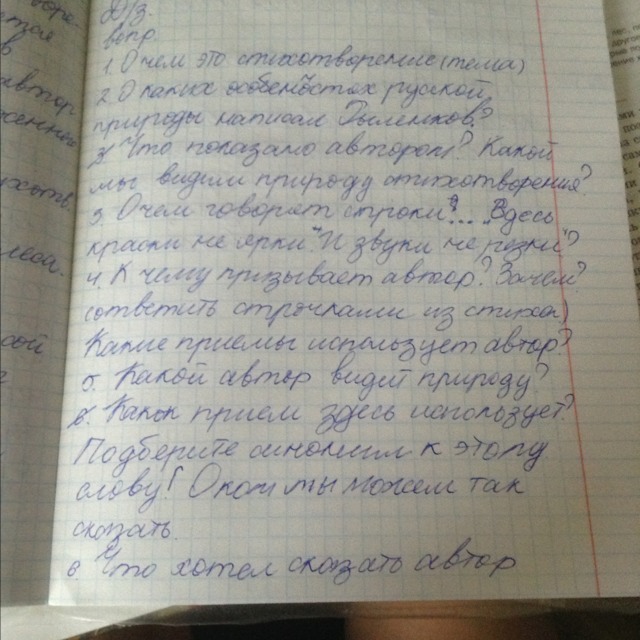 Д/з.
вопр.
1. О чем это стихотворение (тема)
2. О каких особеностях русской
природы написал Рыленков?
2. Что показано автором? Какой
мы видим природу стихотворения?
3. О чем говорят строки?... "Здесь
краски не ярки" "И звуки не резки"?
4. К чему призывает автор? Зачем?
(ответить строчками из стиха)
Какие приемы использует автор?
5. Какой автор видит природу?
прием здесь использует?
Подберите синоним к этому
слову! О ком мы можем так
сказать.
6. Что хотел сказать автор
автор